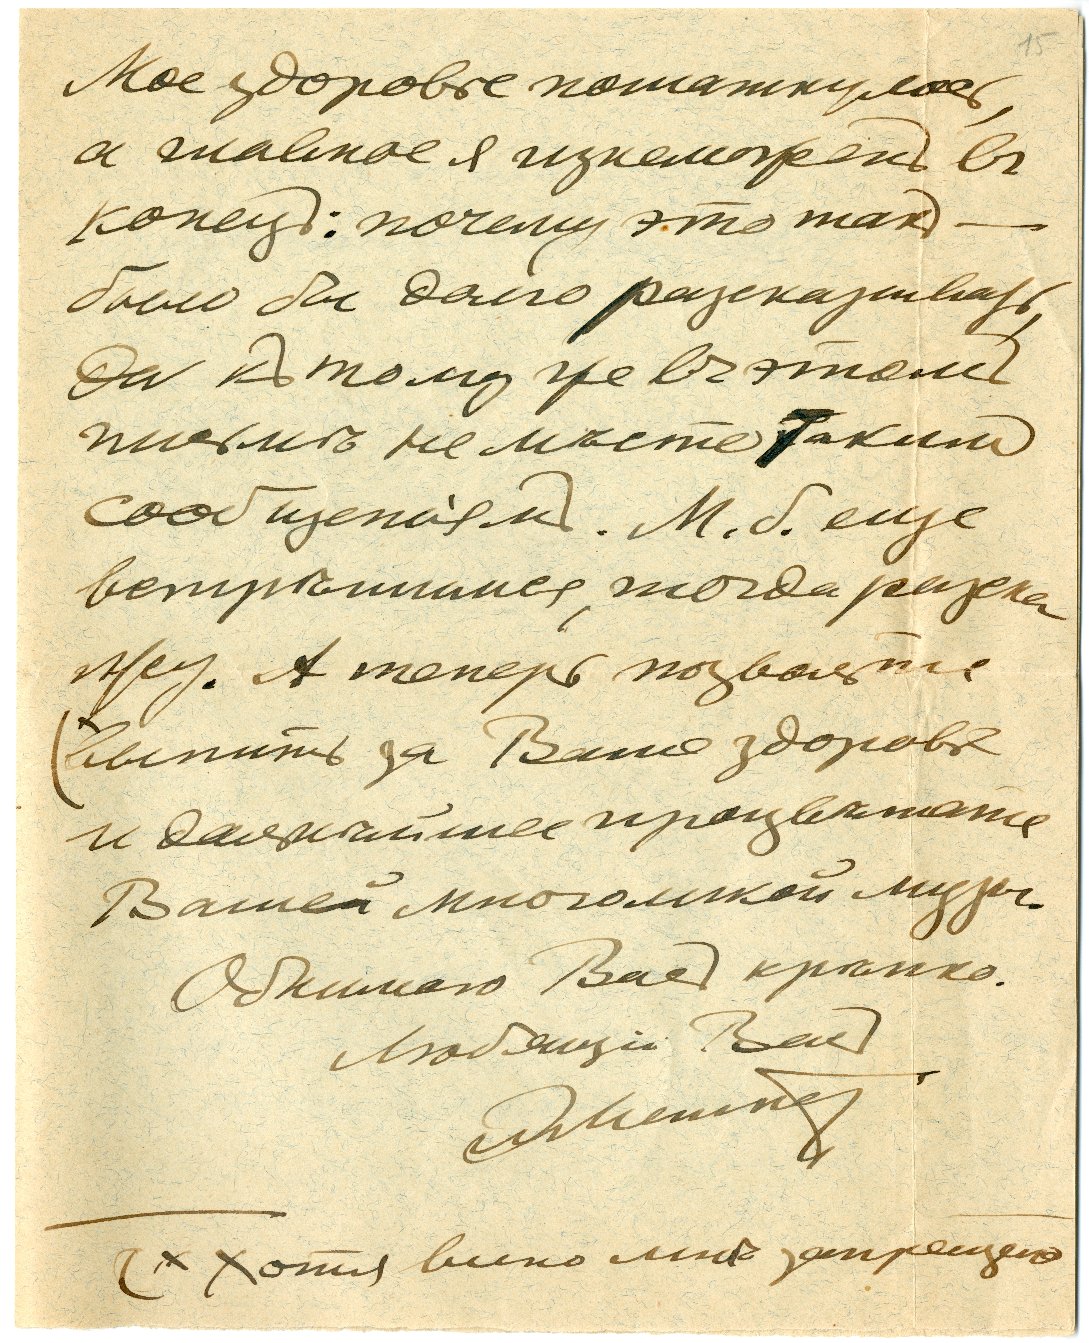 15
Мое здоровье пошатнулось,
а главное я изнеможенъ въ
конецъ: почему это такъ —
было бы долго разсказывать,
да къ тому же въ этомъ
письмѣ не мѣсто такимъ
сообщеніямъ. М. б. еще
встрѣтимся, тогда разска
жу. А теперь позвольте
(x выпить за Ваше здоровье
и дальнѣйшее процвѣтаніе
Вашей многоликой музы.
Обнимаю Васъ крѣпко.
Любящій Васъ
(x Хотя вино мнѣ запрещено